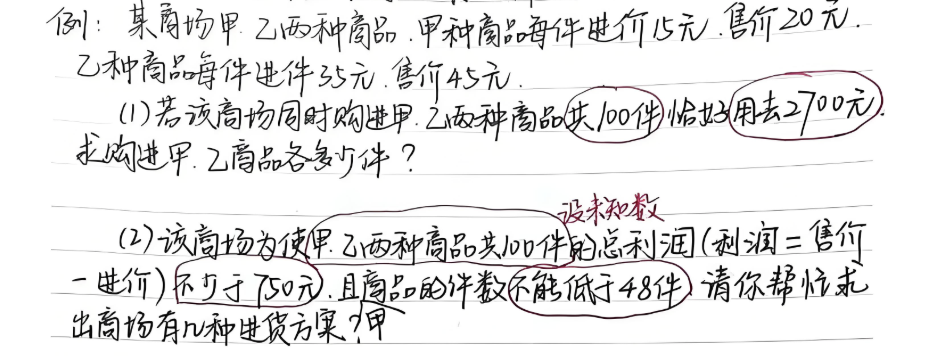 例：某商场甲.乙两种商品.甲种商品每件进价15元.售价20元.
乙种商品每件进件35元.售价45元.
(1)若该商场同时购进甲.乙两种商品共100件恰好用去2700元.
求购进甲.乙商品各多少件？
设未知数
(2)该商场为使甲.乙两种商品共100件的总利润(利润=售价
-进价)不少于750元.且商品的件数不能低于48件.请你帮忙求
出商场有几种进货方案？甲